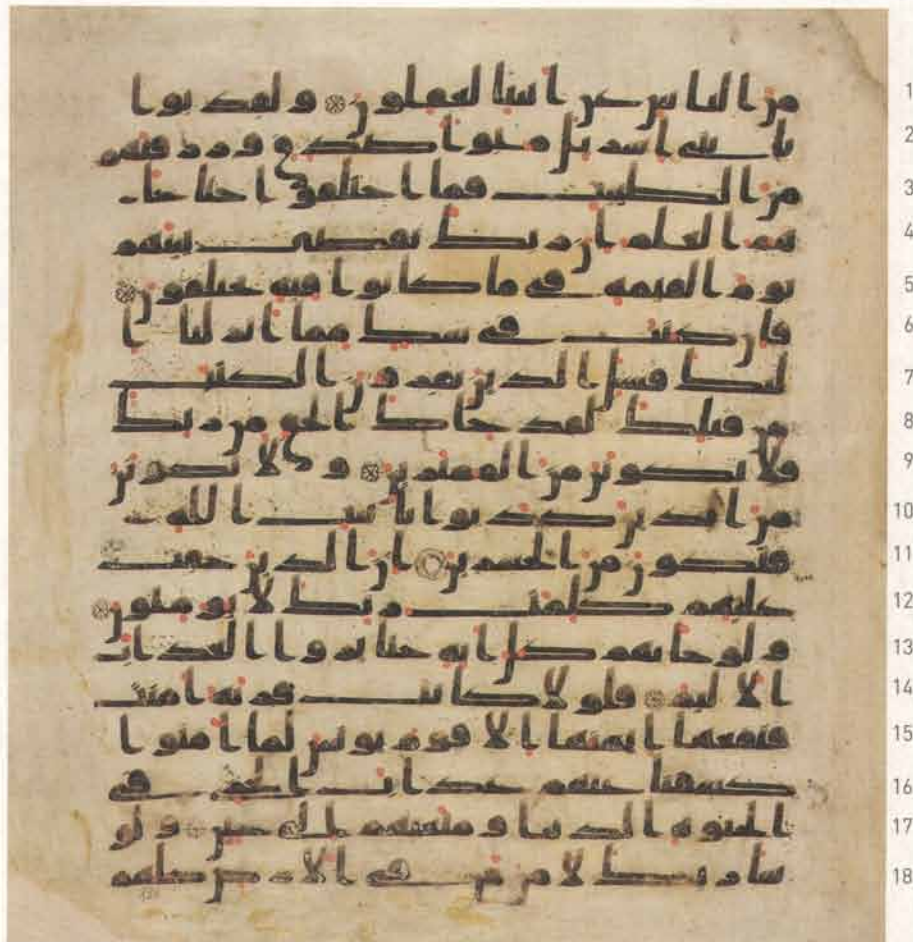 من الناس عن ايتنا لغفلون ولقد بوا 1
نا بني اسريل مبوا صدق ورزقنهم 2
من الطيبت فما اختلفوا حتا جا 3
هم العلم ان ربك يقضي بينهم 4
يوم القيمة في ما كانوا فيه يختلفون 5
فان كنت في شك مما انزلنا ا 6
ليك فسل الذين يقرون الكتب 7
من قبلك لقد جاك الحق من ربك 8
فلا تكونن من الممترين ولا تكونن 9
من الذين كذبوا بايت الله 10
فتكون من الخسرين ان الذين حقت 11
عليهم كلمت ربك لا يومنون 12
ولو جاتهم كل اية حتا يروا العذاب 13
الاليم فلولا كانت قرية امنت 14
فنفعها ايمنها الا قوم يونس لما امنوا 15
كشفنا عنهم عذاب الخزي في 16
الحيوة الدنيا ومتعنهم الى حين ولو 17
شا ربك لامن من في الارض كلهم 18